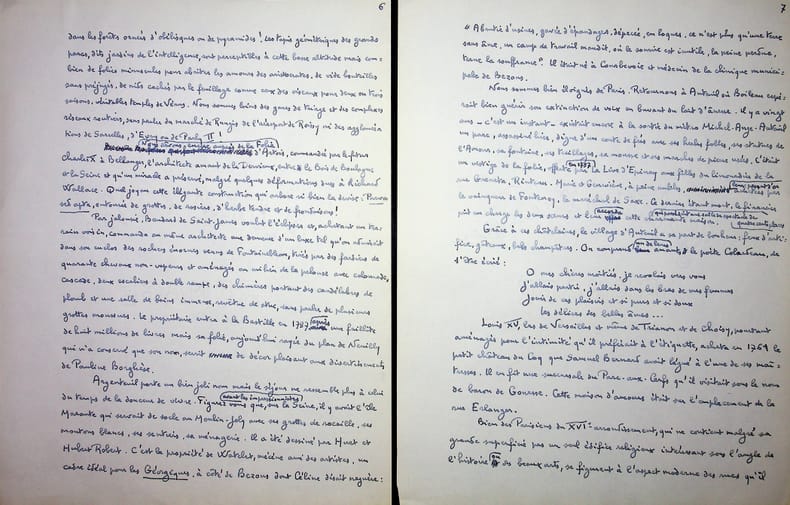 6
dans les forêts ornés d'obélisques ou de pyramides ! Les tapis géométriques des grands
parcs, dits jardins de l'intelligence, sont perceptibles à cette basse altitude mais com-
bien de folies minuscules pour abriter les amours des aristocrates, de vide-bouteilles
sans préjugés, de nids cachés par le feuillage comme ceux des oiseaux pour deux ou trois
saisons, véritables temples de Vénus. Nous sommes loins des gares de triage et des complexes
réseaux routiers, sans parler du marché de Rungis de l'aéroport de Roissy ni des agglomérations
de Sarcelles, d'Evry ou de Parly II !
Nous avons encore auprès de la Folie
d'Artois, commandée par le futur
Charles X à Bellanger, l'architecte amant de la Dervieux, entre le Bois de Boulogne
et la Seine et qu'un miracle a préservé, malgré quelques déformations dues à Richard
Wallace. Quel joyau cette élégante construction qui arbore si bien la devise : Parva
sed apta, entourée de grottes, de rosiers, d'herbe tendre et de frondaisons !
Par jalousie, Baudard de Saint-James voulut l'éclipser et, achetant un ter-
rain voisin, commanda au même architecte une demeure d'un luxe tel qu'on admirait
dans son enclos des rochers énormes venus de Fontainebleau, tirés par des fardiers de
quarante chevaux non-vapeurs et aménagés au milieu de la pelouse avec colonnade,
cascade, deux escaliers à double rampe, des cheminées portant des candélabres de
plomb et une salle de bains immense, revêtue de stuc, sans parler de plusieurs
grottes moussues. Le propriétaire entra à la Bastille en 1787 après une faillite
de huit millions de livres mais sa folie, aujourd'hui rayée du plan de Neuilly
qui n'a conservé que son nom, servit de décor plaisant aux divertissements
de Pauline Borghèse.
Argenteuil porte un bien joli nom mais le séjour ne ressemble plus à celui
du temps de la douceur de vivre. Figurez-vous que, avant les impressionnistes, sur la Seine, il y avait l'Ile
Marante qui servait de socle au Moulin-Joly avec ses grottes de rocaille, ses
moutons blancs, ses sentiers, sa ménagerie. Il a été dessiné par Huet et
Hubert Robert. C'est la propriété de Watelet, mécène ami des artistes, un
cadre idéal pour les Géorgiques, à côté de Bezons dont Céline disait naguère :
7
" Abrutie d'usines, gavée d'épandages, dépecée, en loques, ce n'est plus qu'une terre
sans âme, un camp de travail maudit, où le sourire est inutile, la peine perdue,
terne la souffrance". Il était né à Courbevoie et médecin de la clinique munici-
pale de Bezons.
Nous sommes bien éloignés de Paris. Retournons à Auteuil où Boileau espé-
rait bien guérir son extinction de voix en buvant du lait d'ânesse. Il y a vingt
ans - c'est un instant - existait encore à la sortie du métro Michel-Ange-Auteuil
un parc, assoupi hier, digne d'un conte de fées avec ses herbes folles, ses statues de
l'Amour, sa fontaine, ses treillages, sa mousse et ses marches de pierre usée. C'était
un vestige de la folie, offerte en 1757 par La Live d'Epinay aux filles du limonadier de la
rue Greneta, Rinteau, Marie et Geneviève, à peine nubiles,
le vainqueur de Fontenoy, le maréchal de Saxe. Ce dernier étant mort, le financier
prit en charge les deux sœurs et leur accorda cette
Grâce à ces châtelaines, le village d'Auteuil a sa part de bonheur : feux d'arti-
fice, gâteaux, bals champêtres. On comprend un de leurs amants, le poète Colardeau, de
l'être écrié :
O mes chères moitiés, je revolais vers vous
J'allais partir, j'allais dans les bras de mes femmes
Jouir de ces plaisirs et si purs et si doux
Les délices des belles âmes...
Louis XV, las de Versailles et même de Trianon et de Choisy, pourtant
aménagés pour l'intimité qu'il préférait à l'étiquette, acheta en 1761 le
petit château du Coq que Samuel Bernard avait légué à l'une de ses maî-
tresses. Il en fit une succursale du Parc-aux-Cerfs qu'il visitait sous le nom
de baron de Gonesse. Cette maison d'amours était sur l'emplacement de la
rue Erlanger.
Bien des Parisiens du XVIe arrondissement, qui ne contient malgré sa
grande superficie pas un seul édifice religieux intéressant sous l'angle de
l'histoire ou des beaux arts, se figurent à l'aspect moderne des rues qu'il